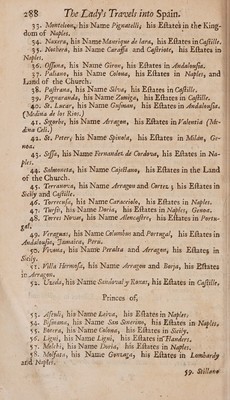 288 The Lady's Travels into Spain.
33. Monteleon, his Name Pignatelli, his Estates in the King-
dom of Naples.
34. Naxera, his Name Manrique de lara, his Estates in Castille.
35. Nochera, his Name Caraffa and Castrioto, his Estates in
Naples.
36. Ossuna, his Name Giron, his Estates in Andalousia.
37. Paliano, his Name Colona, his Estates in Naples, and
Land of the Church.
38. Pastrana, his Name Silva, his Estates in Castille.
39. Pegnaranda, his Name Zuniga, his Estates in Castille.
40. St. Lucar, his Name Gusman, his Estates in Andalousia.
(Medina de los Rios.)
41. Segorbe, his Name Arragon, his Estates in Valentia (Me-
dina Celi.)
42. St. Peter, his Name Spinola, his Estates in Milan, Ge-
noa.
43. Sessa, his Name Fernandez de Cordova, his Estates in Na-
ples.
44. Salmoneta, his Name Cajettano, his Estates in the Land
of the Church.
45. Terranova, his Name Arragon and Cortez; his Estates in
Sicily and Castille.
46. Torrecusa, his Name Caracciolo, his Estates in Naples.
47. Tursis, his Name Doria, his Estates in Naples, Genoa.
48. Torres Novas, his Name Alencastro, his Estates in Portu-
gal.
49. Veraguas, his Name Columbus and Portugal, his Estates in
Andalousia, Jamaica, Peru.
50. Vivona, his Name Peralta and Arragon, his Estates in
Sicily.
51. Villa Hermosa, his Name Arragon and Borja, his Estates
in Arragon.
52. Uzeda, his Name Sandoval y Roxas, his Estates in Castille.
Princes of,
53. Ascoli, his Name Leiva, his Estates in Naples.
54. Bisignano, his Name San Severino, his Estates in Naples.
55. Botera, his Name Colona, his Estates in Sicily.
56. Ligni, his Name Ligni, his Estates in Flanders.
57. Melchi, his Name Doria, his Estates in Naples.
58. Molfata, his Name Gonzaga, his Estates in Lombardy
and Naples.
59. Stillano